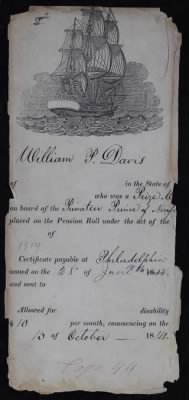 William P. Davis
of in the State of
who was a Prize M
on board of the Privateer Prince of Neuf
placed on the Pension Roll under the act of the
of
Certificate payable at Philadelphia
issued on the 25 of June 18
and sent to
Allowed for disability
$ 10 per month, commencing on the
15 of October 18
Page 94